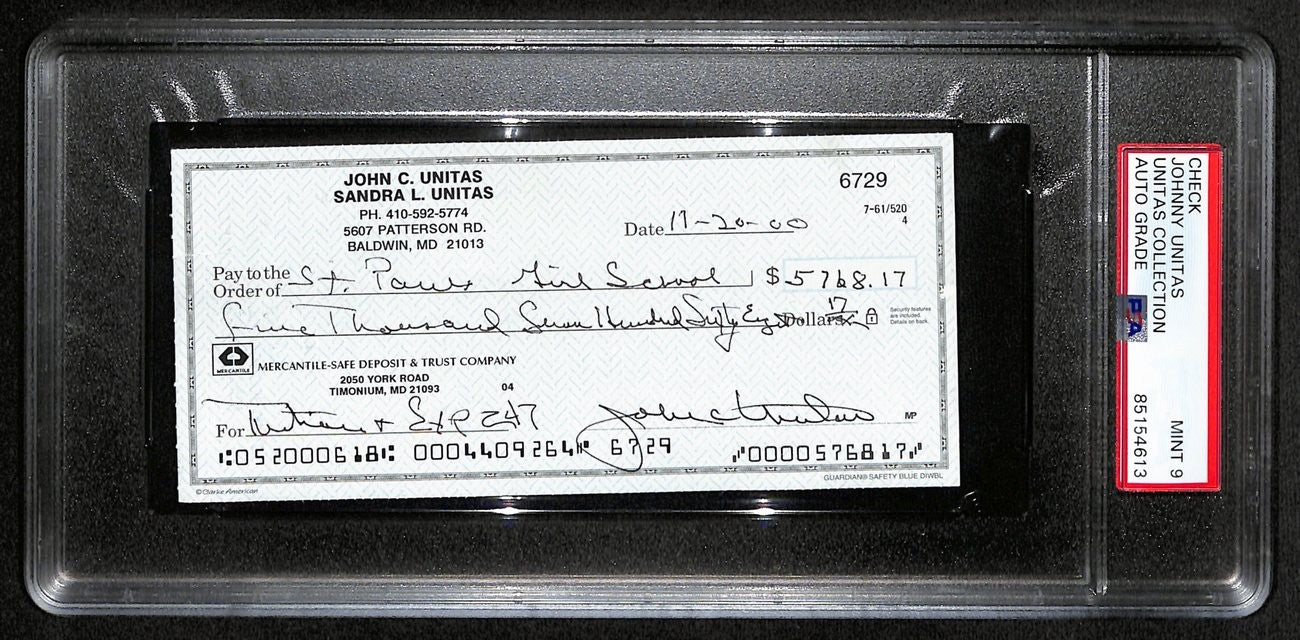 JOHN C. UNITAS
SANDRA L. UNITAS
PH. 410-592-5774
5607 PATTERSON RD.
BALDWIN, MD 21013
6729
7-61/520
4
Date 11-20-00
Pay to the
Order of St. Pauls Girl School $ 5768.17
Five Thousand Seven Hundred Sixty Eight Dollars 17
Security features
are included.
Details on back.
MERCANTILE
MERCANTILE-SAFE DEPOSIT & TRUST COMPANY
2050 YORK ROAD
TIMONIUM, MD 21093
04
For Tuition + Exp 247 John C Unitas MP
⑆052000618⑆ 0004409264⑈ 6729 ⑈0000576817⑈
© Clarke American
GUARDIAN® SAFETY BLUE DIWBL
CHECK
JOHNNY UNITAS
UNITAS COLLECTION
AUTO GRADE
MINT 9
85154613
PSA